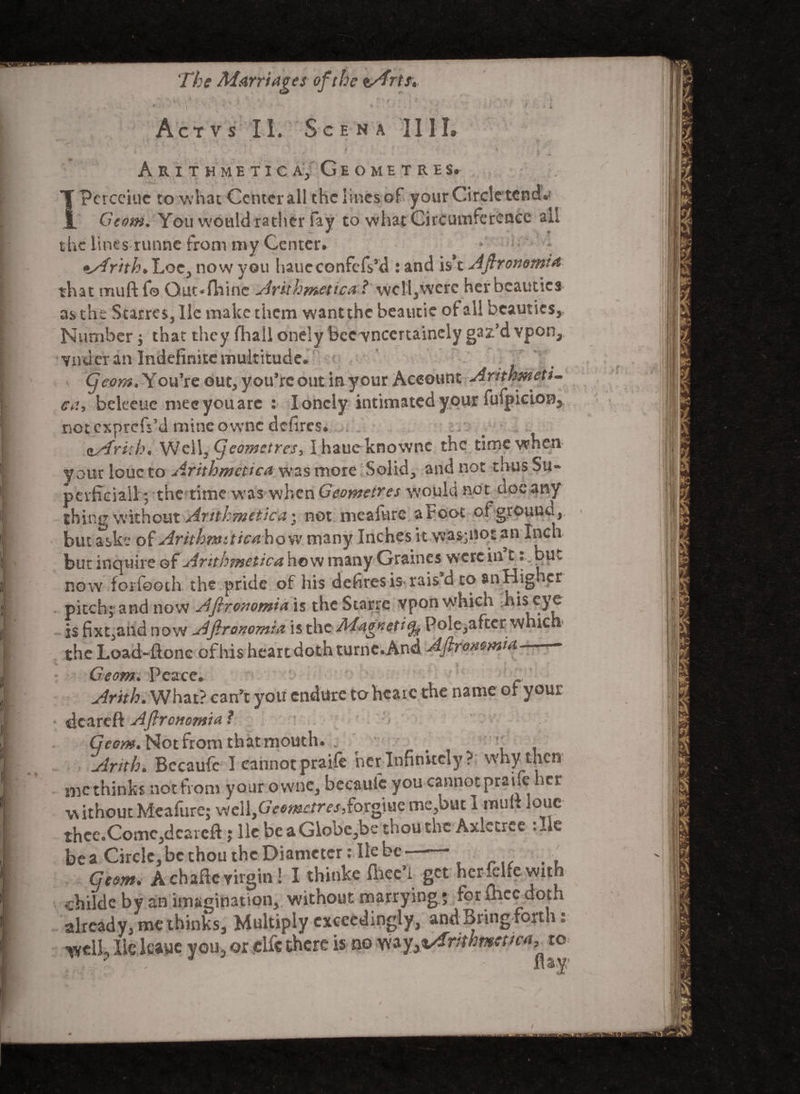 The Marriages of the Arts.
ACTVS II. SCENA IIII.
ARITHMETICA, GEOMETRES.
I Perceiue to what Center all the lines of your Circle tend.
Geom. You would rather say to what Circumference all
the lines runne from my Center.
Arith. Loe, now you haue confess'd : and is't Astronomia
that must so Out-shine Arithmetica? well, were her beauties
as the Starres, Ile make them want the beautie of all beauties,
Number ; that they shall onely bee vncertainely gaz'd vpon,
vnder an Indefinite multitude.
Geom. You're out, you're out in your Account Arithmeti-
ca, beleeue mee you are : I onely intimated your suspicion,
not express'd mine owne desires.
Arith. Well, Geometres, I haue knowne the time when
your loue to Arithmetica was more Solid, and not thus Su-
perficiall ; the time was when Geometres would not doe any
thing without Arithmetica ; not measure a Foot of ground,
but aske of Arithmetica how many Inches it was; not an Inch
but inquire of Arithmetica how many Graines were in't : but
now forsooth the pride of his desires is rais'd to an Higher
pitch; and now Astronomia is the Starre vpon which his eye
is fixt, and now Astronomia is the Magnetiq Pole, after which
the Load-stone of his heart doth turne. And Astronomia——
Geom. Peace.
Arith. What? can't you endure to heare the name of your
dearest Astronomia ?
Geom. Not from that mouth.
Arith. Because I cannot praise her Infinitely ? why then
me thinks not from your owne, because you cannot praise her
without Measure; well, Geometres, forgiue me, but I must loue
thee. Come, dearest ; Ile be a Globe, be thou the Axletree : Ile
be a Circle, be thou the Diameter : Ile be——
Geom. A chaste virgin ! I thinke shee'l get her selfe with
childe by an imagination, without marrying ; for shee doth
already, me thinks, Multiply exceedingly, and Bring forth :
well, Ile leaue you, or else there is no way, Arithmetica, to
stay